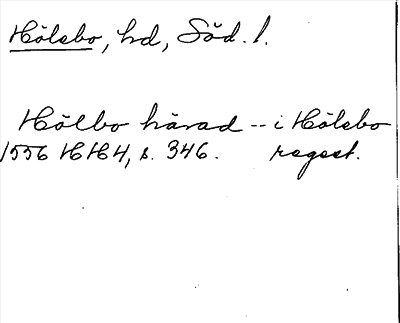 Hölebo, hd, Söd. l.
Hölbo härad -- i Hölebo
1556 HH4, s. 346. regest.